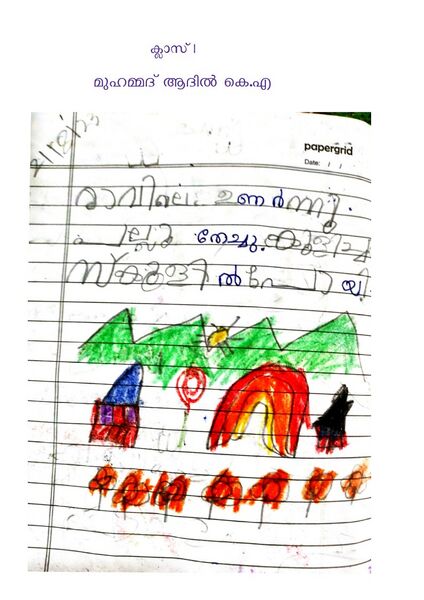 ക്ലാസ് I
മുഹമ്മദ് ആദിൽ കെ.എ
papergrid
Date: / /
രാവിലെ ഉണർന്നു.
പല്ലു തേച്ചു. കുളിച്ചു
സ്കൂളിൽ പോയി.